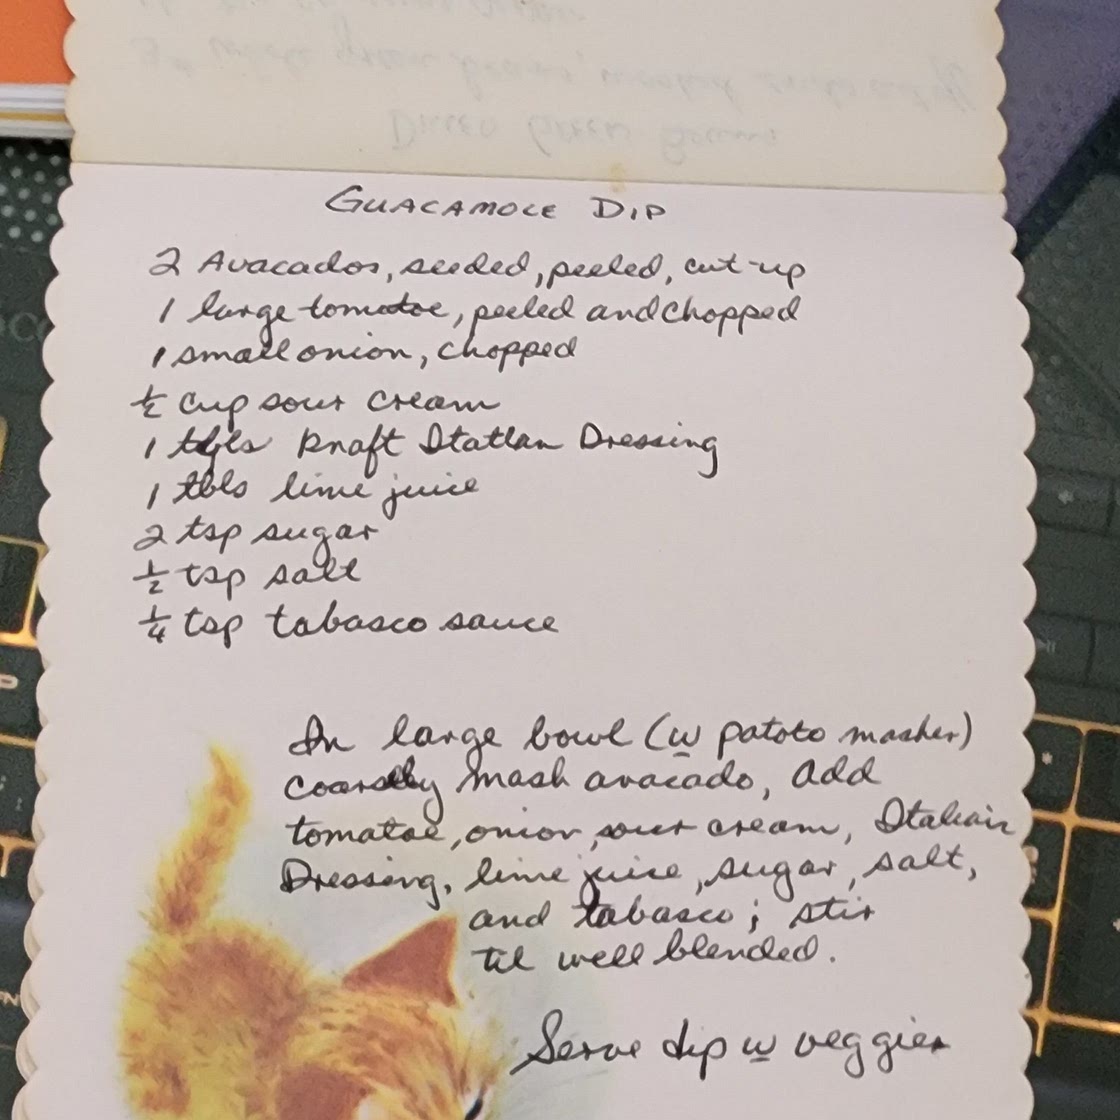 Dilled Green Beans
GUACAMOLE DIP
2 Avacados, seeded, peeled, cut-up
1 large tomatoe, peeled and chopped
1 small onion, chopped
½ cup sour cream
1 tbls Kraft Itatlan Dressing
1 tbls lime juice
2 tsp sugar
½ tsp salt
¼ tsp tabasco sauce
In large bowl (w patoto masher)
coarsely mash avacado, add
tomatoe, onion, sour cream, Italian
Dressing, lime juice, sugar, salt,
and tabasco; stir
til well blended.
Serve dip w veggies